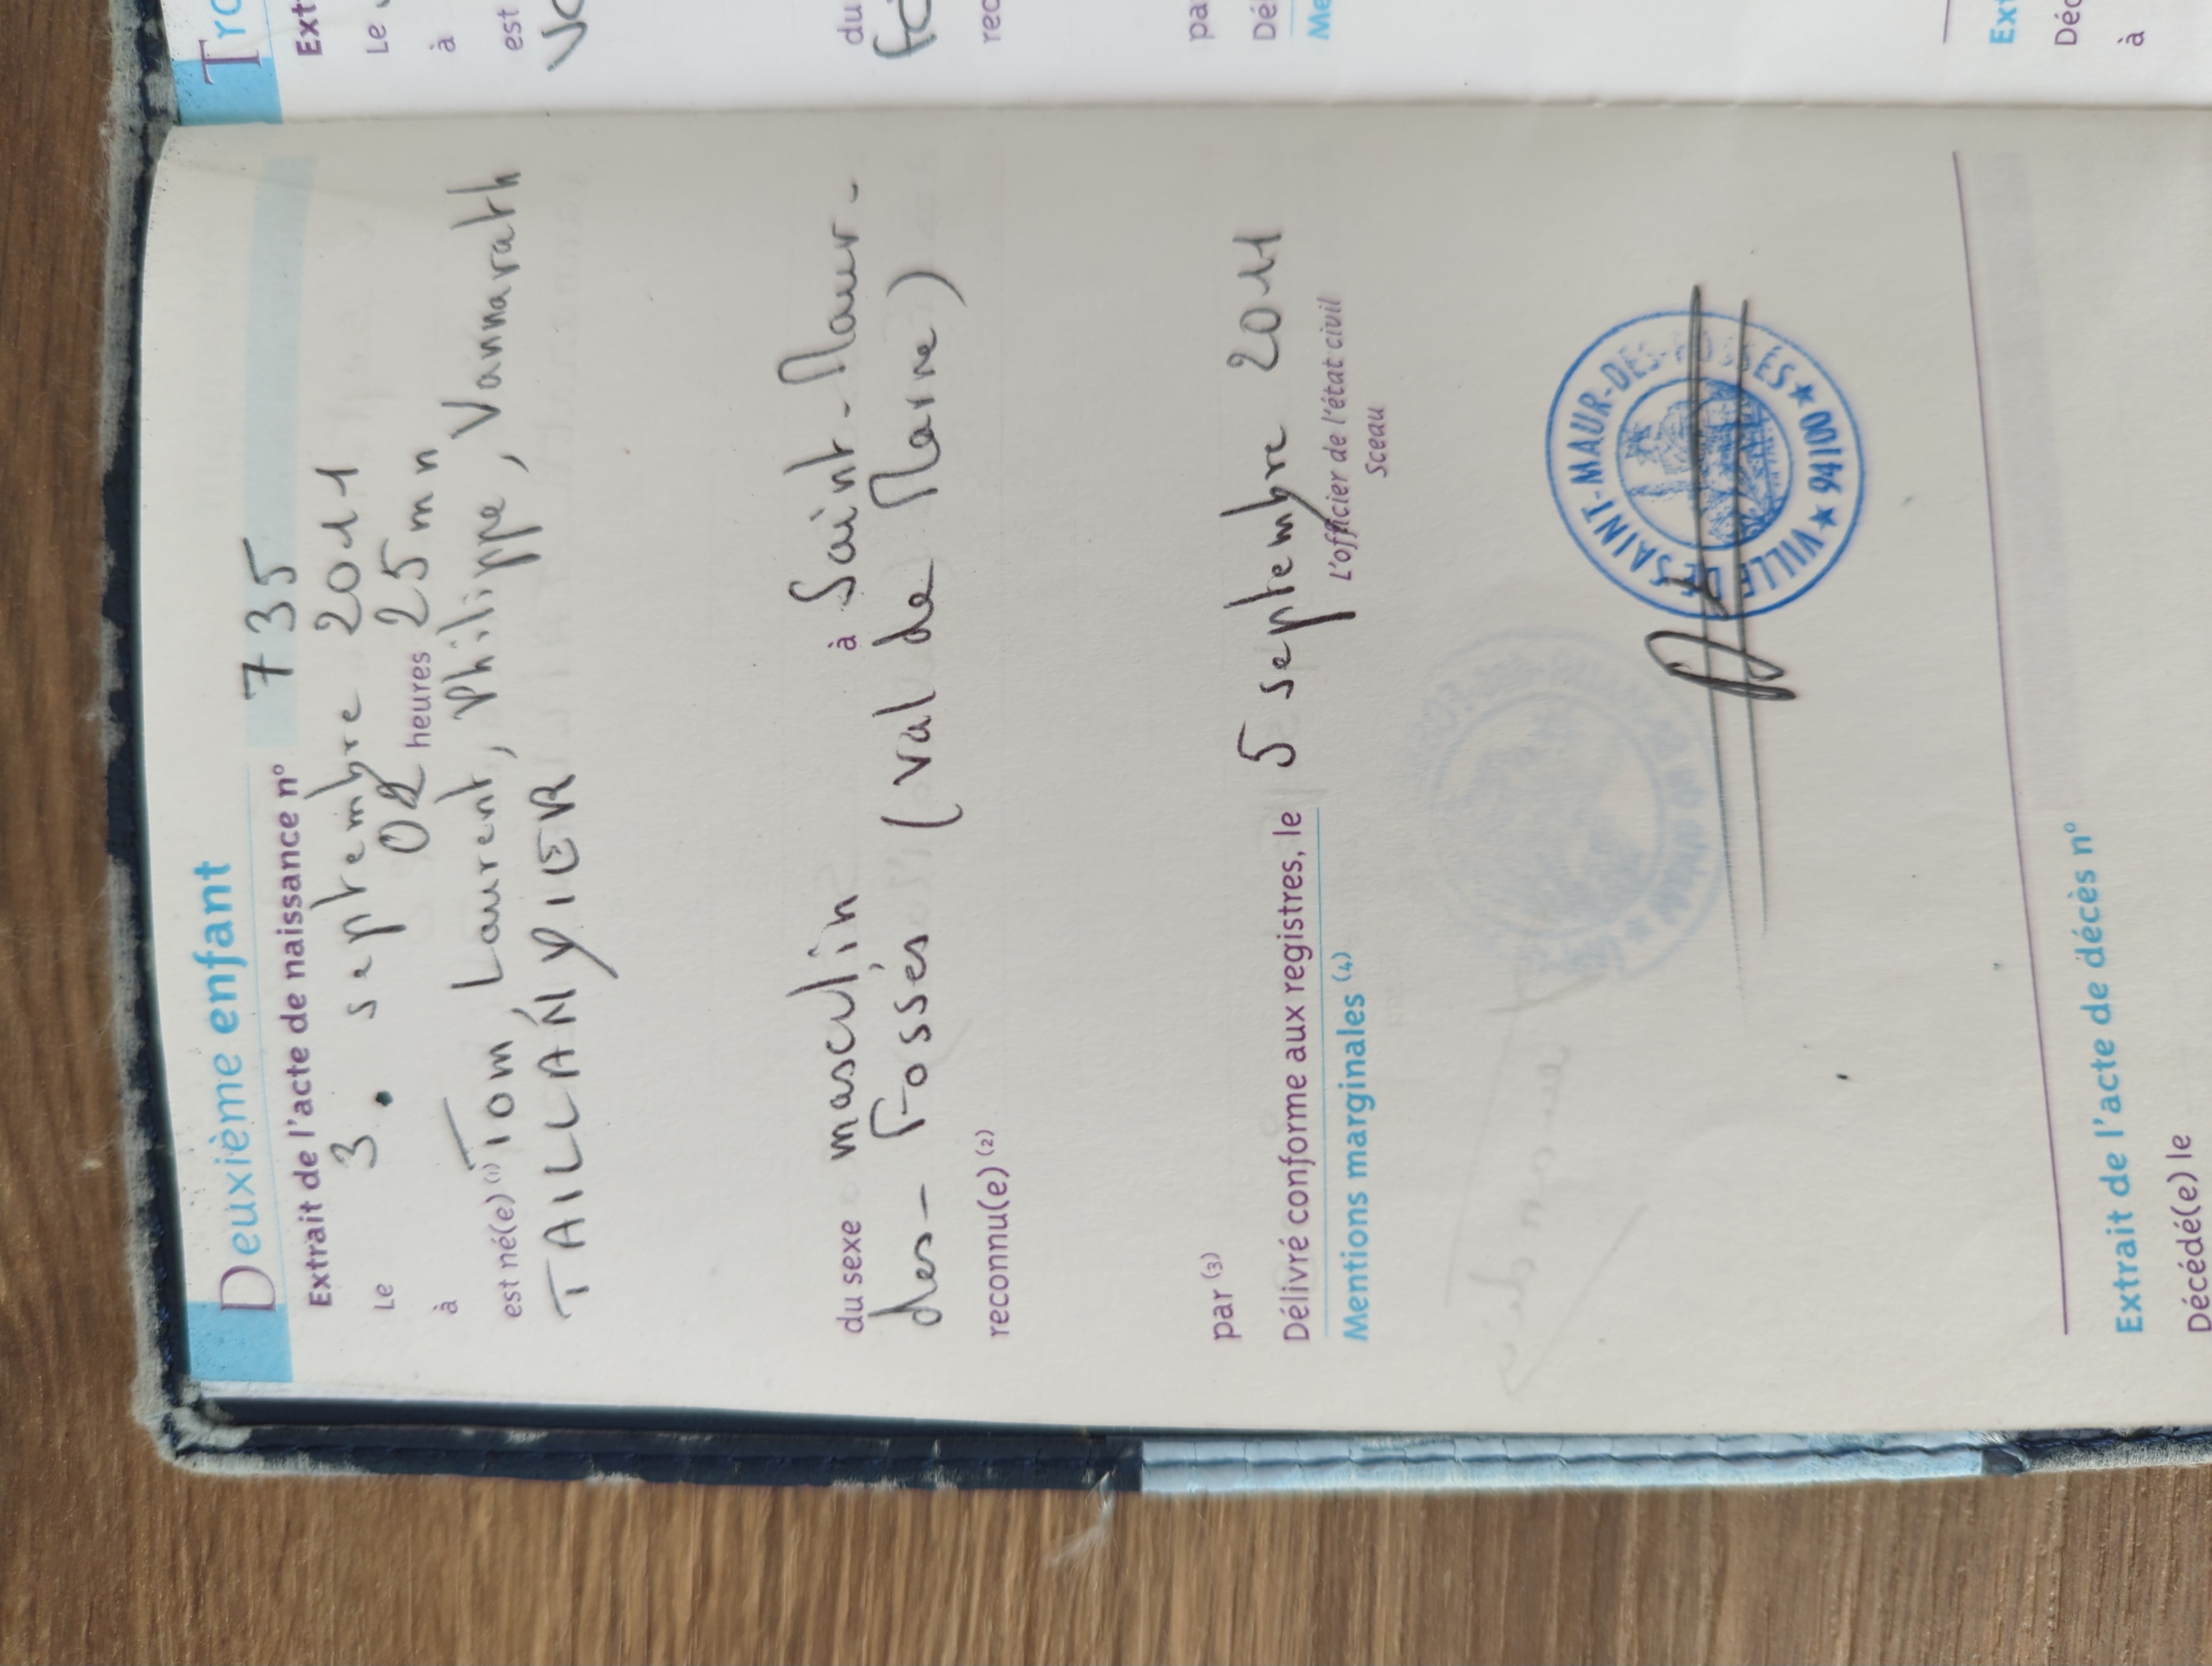 Deuxième enfant
Extrait de l'acte de naissance n° 735
Le 3. septembre 2011
à 02 heures 25 mn
est né(e) (1) Tom, Laurent, Philippe, Vannarath
TAILLANYIER
du sexe masculin à Saint-Maur-
des-Fossés (Val de Marne)
reconnu(e) (2)
par (3)
Délivré conforme aux registres, le 5 septembre 2011
L'officier de l'état civil
Sceau
Mentions marginales (4)
VILLE DE SAINT-MAUR-DES-FOSSÉS
94100
Extrait de l'acte de décès n°
Décédé(e) le
Tro
Ext
Le
à
est
du
rec
pa
Dél
Me
Ext
Déc
à